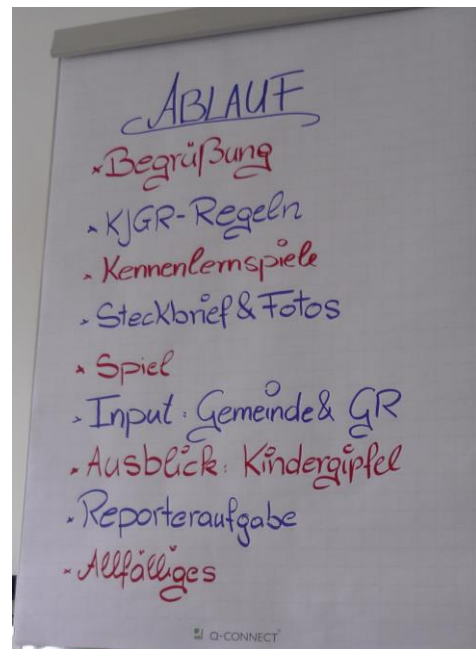 ABLAUF
* Begrüßung
* KJGR-Regeln
* Kennenlernspiele
* Steckbrief & Fotos
* Spiel
* Input: Gemeinde & GR
* Ausblick: Kindergipfel
* Reporteraufgabe
* Allfälliges
Q-CONNECT